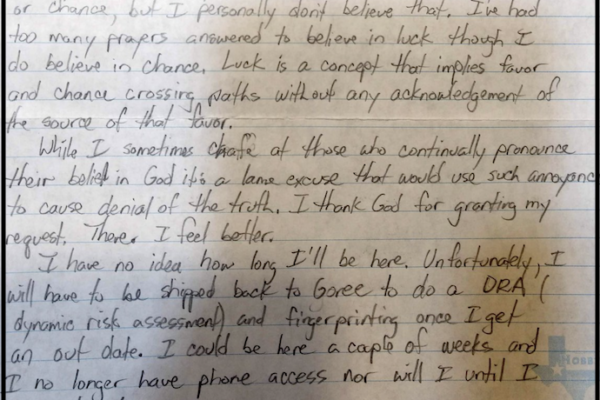 or chance, but I personally don't believe that. I've had
too many prayers answered to believe in luck though I
do believe in chance. Luck is a concept that implies favor
and chance crossing paths without any acknowledgement of
the source of that favor.
While I sometimes chafe at those who continually pronounce
their belief in God it's a lame excuse that would use such annoyanc
to cause denial of the truth. I thank God for granting my
request. There. I feel better.
I have no idea how long I'll be here. Unfortunately, I
will have to be shipped back to Goree to do a DRA (
dynamic risk assessment) and fingerprinting once I get
an out date. I could be here a couple of weeks and
I no longer have phone access nor will I until I